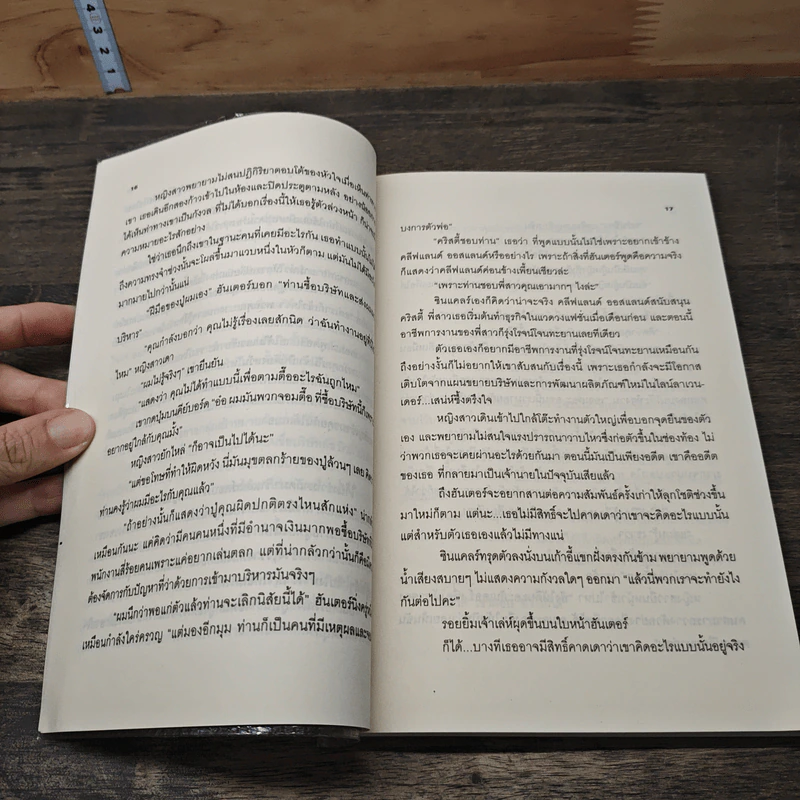 4 3 2 1
๑๖
หญิงสาวพยายามไม่สนปฏิกิริยาตอบโต้ของหัวใจเมื่อเดินตาม
เขา เธอเดินอีกสองก้าวเข้าไปในห้องและปิดประตูตามหลัง
ได้เห็นท่าทางเขาเป็นกังวล ที่ไม่ได้บอกเรื่องนี้ให้เธอรู้ตัวล่วงหน้า
ความหมายอะไรสักอย่าง
ใช่ว่าเธอนึกถึงเขาในฐานะคนที่เคยมีอะไรกัน เธอทำแบบนั้น
ถึงความทรงจำช่วงนั้นจะโผล่ขึ้นมาแวบหนึ่งในหัวก็ตาม แต่มันไม่ได้
มากมายไปกว่านั้นแน่
"ฝีมือของปู่ผมเอง" ฮันเตอร์บอก "ท่านซื้อบริษัทและส่งผม
บริหาร"
"คุณกำลังบอกว่า คุณไม่รู้เรื่องเลยสักนิด ว่าฉันทำงานอยู่ที่
ไหม" หญิงสาวเดา
"ผมไม่รู้จริงๆ" เขายืนยัน
"แสดงว่า คุณไม่ได้ทำแบบนี้เพื่อตามตื๊ออะไรฉันถูกไหม"
เขากดปุ่มบนคีย์บอร์ด "อ๋อ ผมมันพวกจอมตื๊อ ที่ซื้อบริษัทนี้
อยากอยู่ใกล้กับคุณมั้ง"
หญิงสาวยักไหล่ "ก็อาจเป็นไปได้นะ"
"แต่ขอโทษที่ทำให้ผิดหวัง นี่มันมุขตลกร้ายของปู่ล้วนๆ เลย คิด
ท่านคงรู้ว่าผมมีอะไรกับคุณแล้ว"
"ถ้าอย่างนั้นก็แสดงว่าปู่คุณผิดปกติตรงไหนสักแห่ง"
เหมือนกันนะ แค่คิดว่ามีคนคนหนึ่งที่มีอำนาจเงินมากพอซื้อบริษัท
พนักงานสี่ร้อยคนเพราะแค่อยากเล่นตลก แต่ที่น่ากลัวกว่านั้นก็คือ
ต้องจัดการกับปัญหาที่ว่าด้วยการเข้ามาบริหารมันจริงๆ
"ผมนึกว่าพอแก่ตัวแล้วท่านจะเลิกนิสัยนี้ได้" ฮันเตอร์นิ่งครู่
เหมือนกำลังใคร่ครวญ "แต่มองอีกมุม ท่านก็เป็นคนที่มีเหตุผลและ
๑๗
บงการตัวพ่อ"
"คริสตี้ชอบท่าน" เธอว่า ที่พูดแบบนั้นไม่ใช่เพราะอยากเข้าข้าง
คลีฟแลนด์ ออสแลนด์หรืออย่างไร เพราะถ้าสิ่งที่ฮันเตอร์พูดคือความจริง
ก็แสดงว่าคลีฟแลนด์ค่อนข้างเพี้ยนเชียวล่ะ
"เพราะท่านชอบพี่สาวคุณเอามากๆ ไงล่ะ"
ซินแคลร์เองก็คิดว่าน่าจะจริง คลีฟแลนด์ ออสแลนด์สนับสนุน
คริสตี้ พี่สาวเธอเริ่มต้นทำธุรกิจในแวดวงแฟชั่นเมื่อเดือนก่อน และตอนนี้
อาชีพการงานของพี่สาวก็รุ่งโรจน์โจนทะยานเลยทีเดียว
ตัวเธอเองก็อยากมีอาชีพการงานที่รุ่งโรจน์โจนทะยานเหมือนกัน
ถึงอย่างงั้นก็ไม่อยากให้เขาสับสนกับเรื่องนี้ เพราะเธอกำลังจะมีโอกาส
เติบโตจากแผนขยายบริษัทและการพัฒนาผลิตภัณฑ์ใหม่ในไลน์ลาเวน-
เดอร์...เสน่ห์ซึ้งตรึงใจ
หญิงสาวเดินเข้าไปใกล้โต๊ะทำงานตัวใหญ่เพื่อบอกจุดยืนของตัว
เอง และพยายามไม่สนใจแรงปรารถนาวาบไหวซึ่งก่อตัวขึ้นในช่องท้อง ไม่
ว่าพวกเธอจะเคยผ่านอะไรด้วยกันมา ตอนนี้มันเป็นเพียงอดีต เขาคืออดีต
ของเธอ ที่กลายมาเป็นเจ้านายในปัจจุบันเสียแล้ว
ถึงฮันเตอร์จะอยากสานต่อความสัมพันธ์ครั้งเก่าให้ลุกโชติช่วงขึ้น
มาใหม่ก็ตาม แต่นะ...เธอไม่มีสิทธิ์จะไปคาดเดาว่าเขาจะคิดอะไรแบบนั้น
แต่สำหรับตัวเธอเองแล้วไม่มีทางแน่
ซินแคลร์ทรุดตัวลงนั่งบนเก้าอี้แขกฝั่งตรงกันข้าม พยายามพูดด้วย
น้ำเสียงสบายๆ ไม่แสดงความกังวลใดๆ ออกมา "แล้วนี่พวกเราจะทำยังไง
กันต่อไปคะ"
รอยยิ้มเจ้าเล่ห์ผุดขึ้นบนใบหน้าฮันเตอร์
ก็ได้...บางทีเธออาจมีสิทธิ์คาดเดาว่าเขาคิดอะไรแบบนั้นอยู่จริง